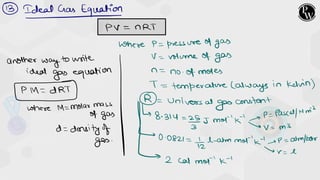 13 Ideal Gas Equation
PV = nRT
where P = pressure of gas
V = volume of gas
n = no. of moles
T = temperature (always in kelvin)
R = Universal gas constant
8.314 = 25/3 J mol⁻¹ K⁻¹ P = Pascal/N m²
V = m³
0.0821 = 1/12 l-atm mol⁻¹ K⁻¹ P = atm/bar
V = l
2 Cal mol⁻¹ K⁻¹
another way to write
ideal gas equation
PM = dRT
where M = molar mass
of gas
d = density of
gas